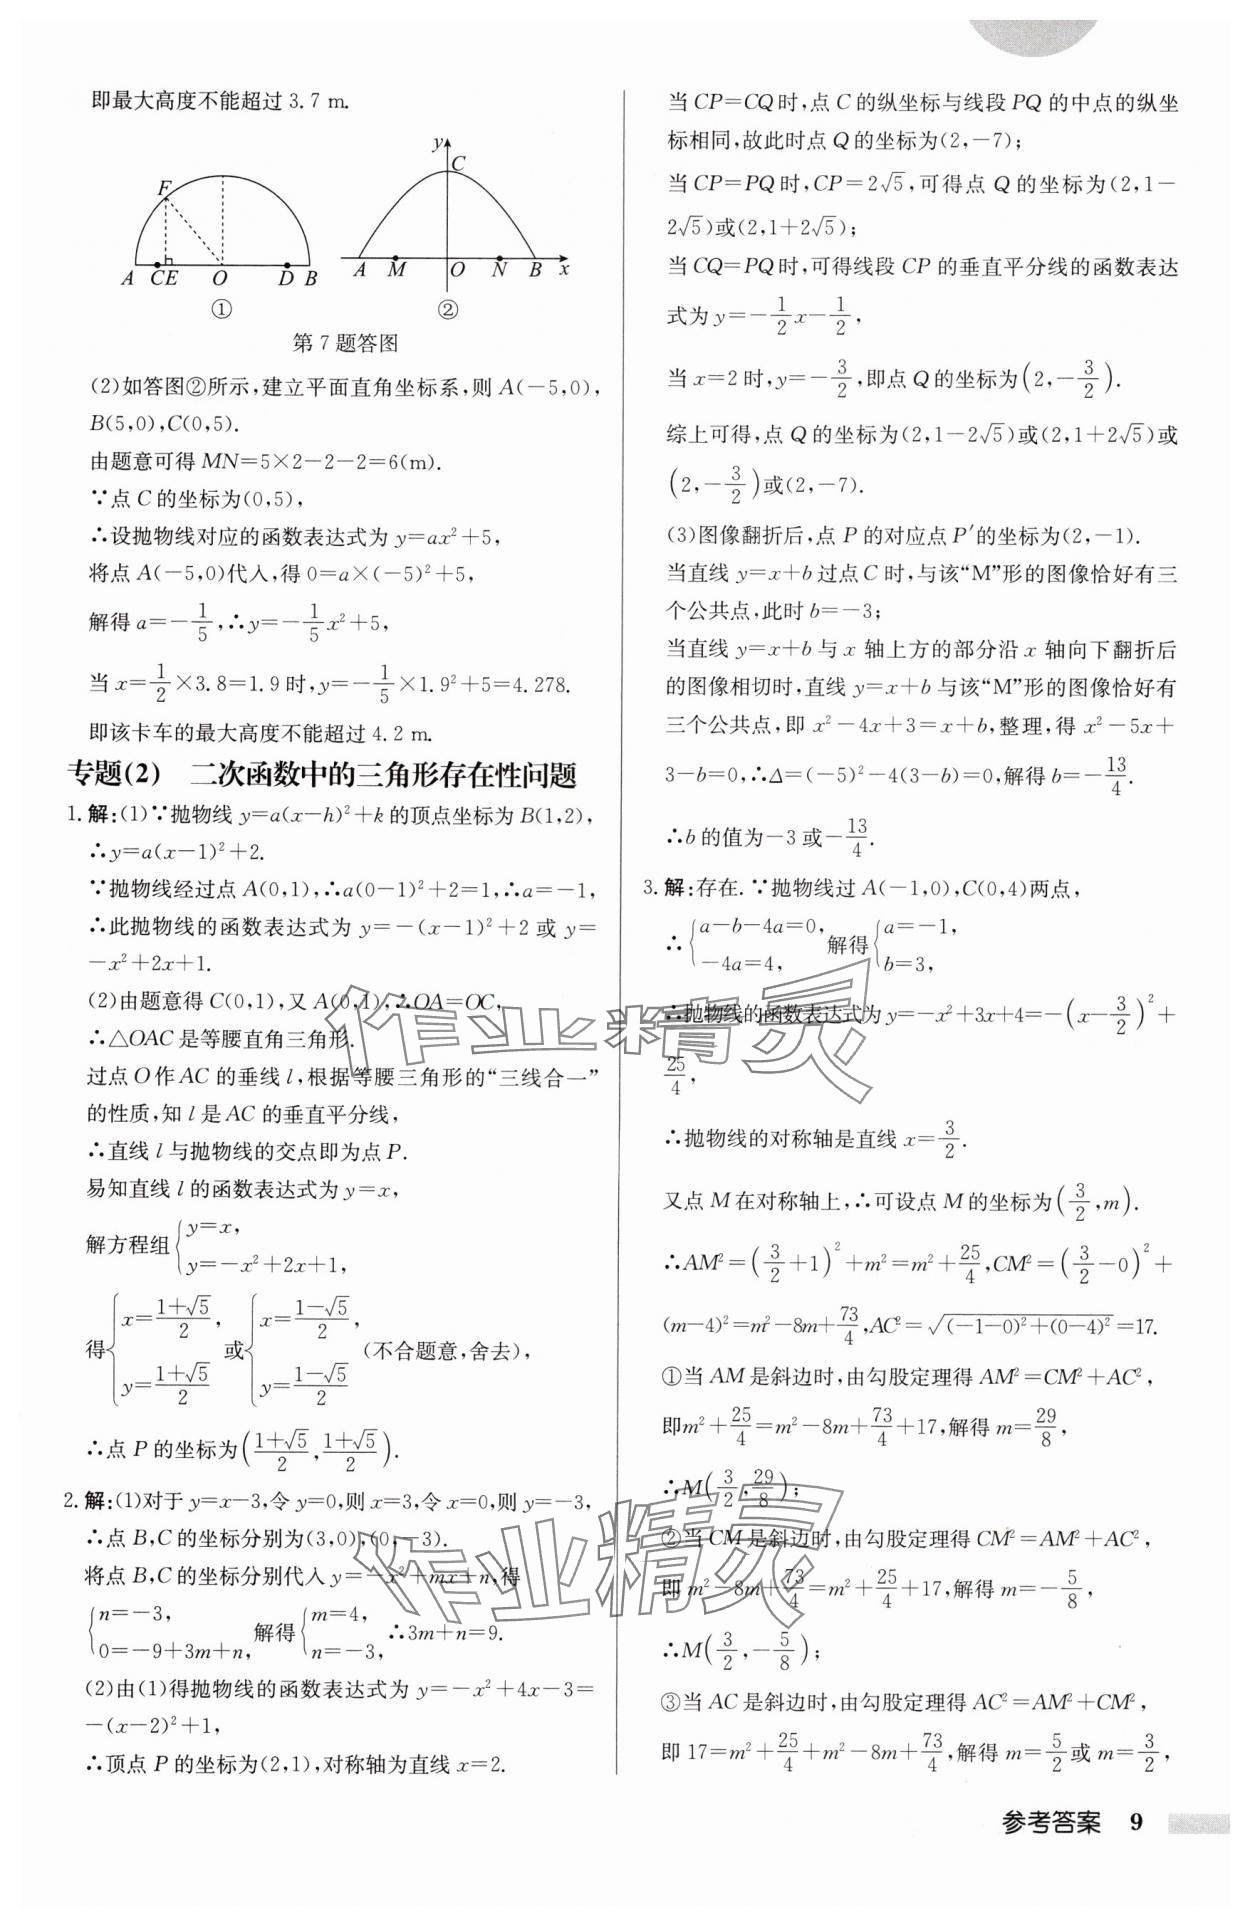 即最大高度不能超过 3.7 m.
F
A CE O D B
①
y
C
A M O N B x
②
第 7 题答图
(2)如答图②所示,建立平面直角坐标系,则 A(-5,0),
B(5,0),C(0,5).
由题意可得 MN=5×2-2-2=6(m).
∵点 C 的坐标为(0,5),
∴设抛物线对应的函数表达式为 y=ax²+5,
将点 A(-5,0)代入,得 0=a×(-5)²+5,
解得 a=-1/5,∴y=-1/5x²+5,
当 x=1/2×3.8=1.9 时,y=-1/5×1.9²+5=4.278.
即该卡车的最大高度不能超过 4.2 m.
专题(2) 二次函数中的三角形存在性问题
1.解:(1)∵抛物线 y=a(x-h)²+k 的顶点坐标为 B(1,2),
∴y=a(x-1)²+2.
∵抛物线经过点 A(0,1),∴a(0-1)²+2=1,∴a=-1,
∴此抛物线的函数表达式为 y=-(x-1)²+2 或 y=
-x²+2x+1.
(2)由题意得 C(0,1),又 A(0,1),∴OA=OC,
∴△OAC 是等腰直角三角形.
过点 O 作 AC 的垂线 l,根据等腰三角形的“三线合一”
的性质,知 l 是 AC 的垂直平分线,
∴直线 l 与抛物线的交点即为点 P.
易知直线 l 的函数表达式为 y=x,
解方程组{y=x,
y=-x²+2x+1,
得{x=(1+√5)/2, y=(1+√5)/2 或{x=(1-√5)/2, y=(1-√5)/2 (不合题意,舍去),
∴点 P 的坐标为((1+√5)/2,(1+√5)/2).
2.解:(1)对于 y=x-3,令 y=0,则 x=3,令 x=0,则 y=-3,
∴点 B,C 的坐标分别为(3,0),(0,-3).
将点 B,C 的坐标分别代入 y=-x²+mx+n,得
{n=-3, 0=-9+3m+n, 解得{m=4, n=-3, ∴3m+n=9.
(2)由(1)得抛物线的函数表达式为 y=-x²+4x-3=
-(x-2)²+1,
∴顶点 P 的坐标为(2,1),对称轴为直线 x=2.
当 CP=CQ 时,点 C 的纵坐标与线段 PQ 的中点的纵坐
标相同,故此时点 Q 的坐标为(2,-7);
当 CP=PQ 时,CP=2√5,可得点 Q 的坐标为(2,1-
2√5)或(2,1+2√5);
当 CQ=PQ 时,可得线段 CP 的垂直平分线的函数表达
式为 y=-1/2x-1/2,
当 x=2 时,y=-3/2,即点 Q 的坐标为(2,-3/2).
综上可得,点 Q 的坐标为(2,1-2√5)或(2,1+2√5)或
(2,-3/2)或(2,-7).
(3)图像翻折后,点 P 的对应点 P′的坐标为(2,-1).
当直线 y=x+b 过点 C 时,与该“M”形的图像恰好有三
个公共点,此时 b=-3;
当直线 y=x+b 与 x 轴上方的部分沿 x 轴向下翻折后
的图像相切时,直线 y=x+b 与该“M”形的图像恰好有
三个公共点,即 x²-4x+3=x+b,整理,得 x²-5x+
3-b=0,∴Δ=(-5)²-4(3-b)=0,解得 b=-13/4.
∴b 的值为-3 或-13/4.
3.解:存在.∵抛物线过 A(-1,0),C(0,4)两点,
∴{a-b-4a=0, -4a=4, 解得{a=-1, b=3,
∴抛物线的函数表达式为 y=-x²+3x+4=-(x-3/2)²+
25/4,
∴抛物线的对称轴是直线 x=3/2.
又点 M 在对称轴上,∴可设点 M 的坐标为(3/2,m).
∴AM²=(3/2+1)²+m²=m²+25/4,CM²=(3/2-0)²+
(m-4)²=m²-8m+73/4,AC²=√((-1-0)²+(0-4)²)=17.
①当 AM 是斜边时,由勾股定理得 AM²=CM²+AC²,
即m²+25/4=m²-8m+73/4+17,解得 m=29/8,
∴M(3/2,29/8);
②当 CM 是斜边时,由勾股定理得 CM²=AM²+AC²,
即 m²-8m+73/4=m²+25/4+17,解得 m=-5/8,
∴M(3/2,-5/8);
③当 AC 是斜边时,由勾股定理得 AC²=AM²+CM²,
即 17=m²+25/4+m²-8m+73/4,解得 m=5/2或 m=3/2,
作业精灵
作业精灵
参考答案 9